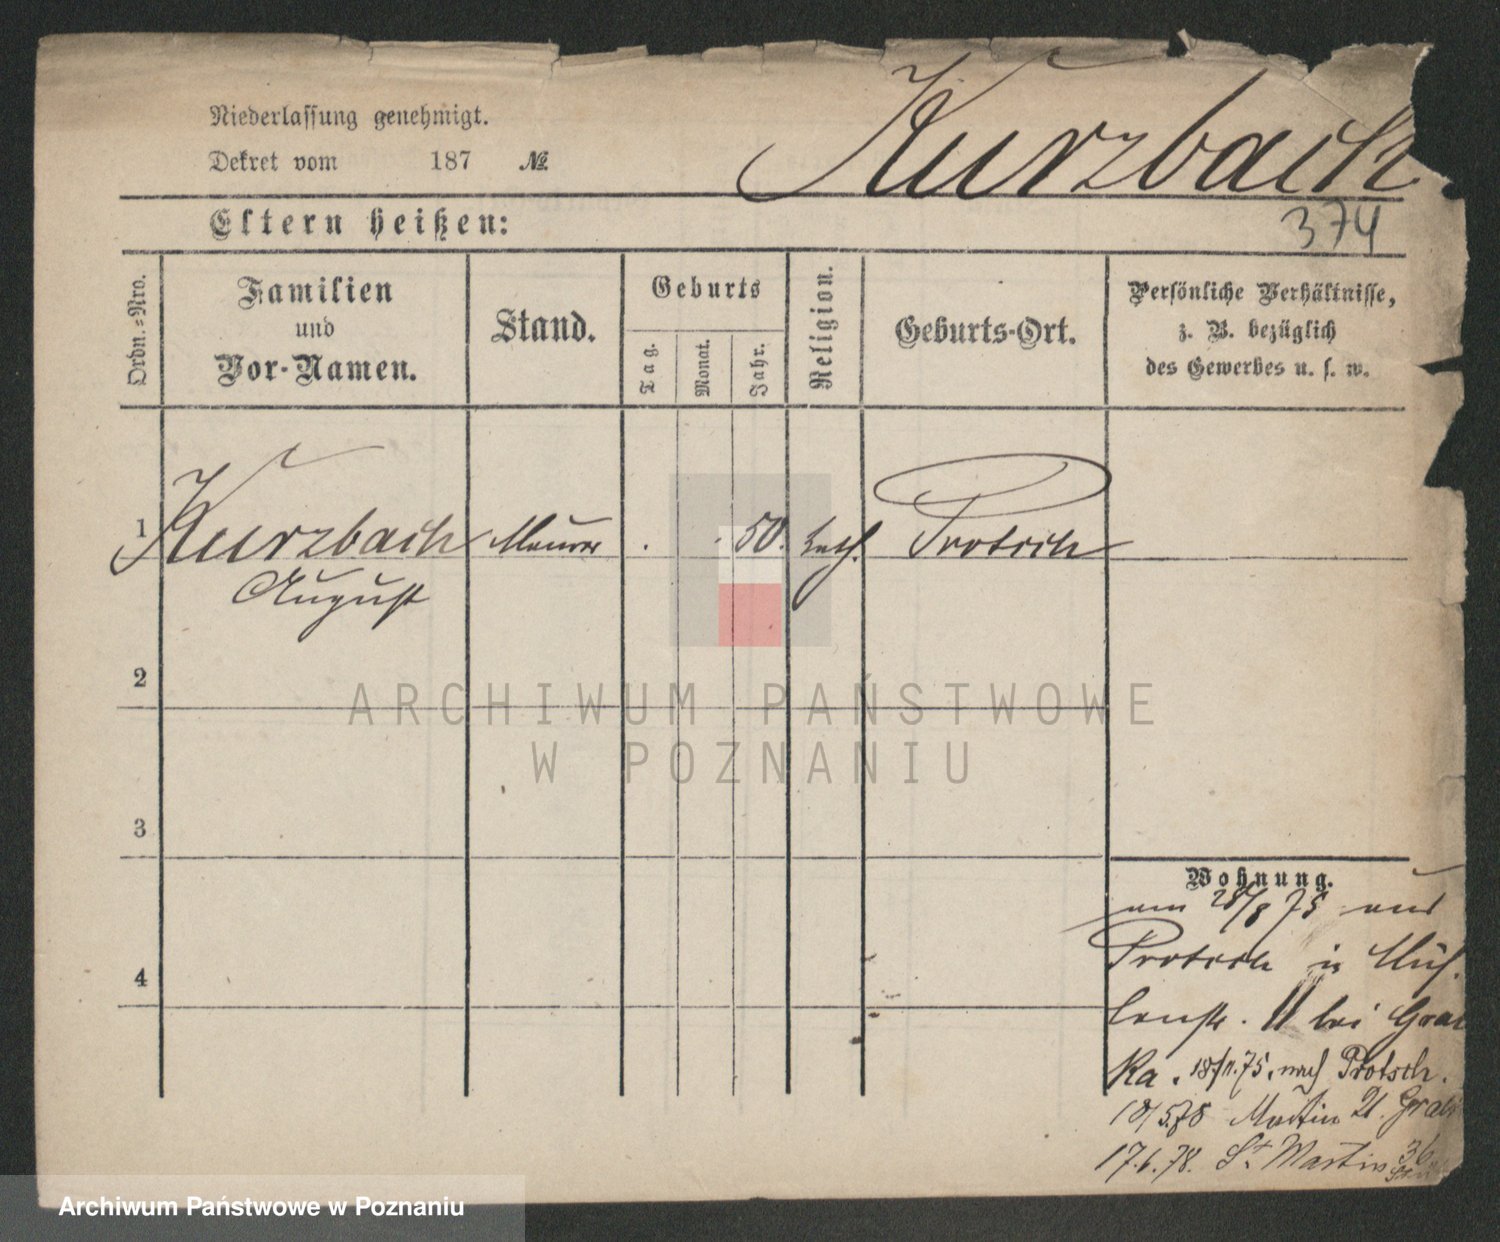 Niederlassung genehmigt.
Dekret vom 187 №
Kurzbach
374
Eltern heißen:
Ordn.=Nro.
Familien
und
Vor-Namen.
Stand.
Geburts
Tag.
Monat.
Jahr.
Religion.
Geburts-Ort.
Persönliche Verhältnisse,
z. B. bezüglich
des Gewerbes u. s. w.
1 Kurzbach Maurer . . 50. kath. Protsch
August
2
3
4
Wohnung.
am 28/8 75 aus
Protsch in Müh-
lenstr. 11 bei Grab
Ka. 18/11.75. nach Protsch.
18/5.78 Martin 21.
17.6.78. St Martin 36
ARCHIWUM PAŃSTWOWE
W POZNANIU
Archiwum Państwowe w Poznaniu